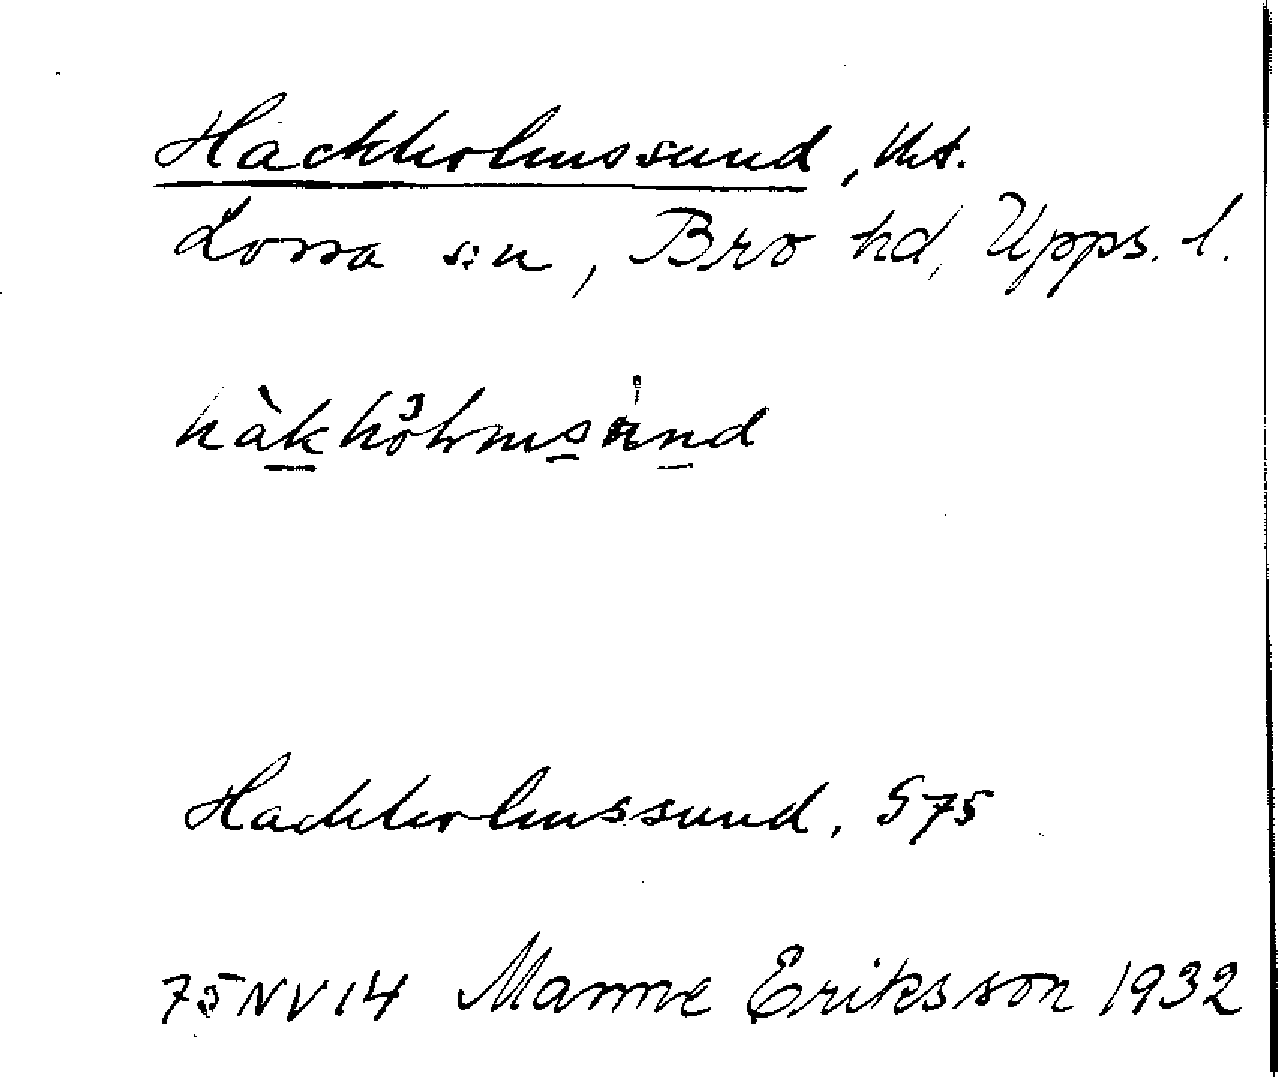 Hackholmssund, Ut.
Lossa s:n, Bro hd, Upps. l.
håkhòlmsúnd
Hackholmssund, S75
75NV14 Manne Eriksson 1932